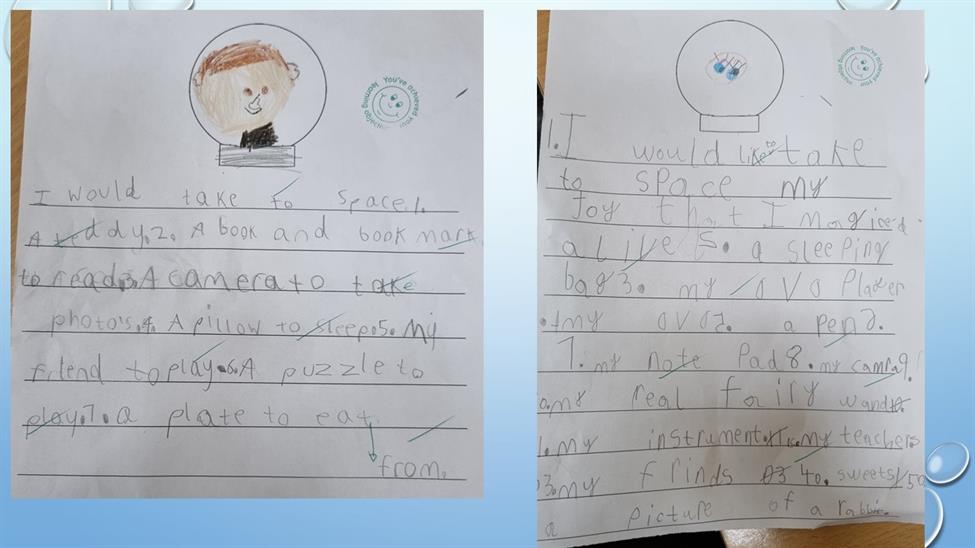 You've achieved your learning objective
I would take to space. 1.
A teddy. 2. A book and book mark
to read. 3. A camera to take
photo's. 4. A pillow to sleep. 5. My
friend to play. 6. A puzzle to
play. 7. a plate to eat
from.
You've achieved your learning objective
1. I would like to take
to space my
toy that I
alive a sleeping
bag 3. my DVD Player
my DVD a pen
7. my note Pad 8. my camra 9.
my real fairy wand
my instrument my teachers
my frinds sweets
a picture of a rabbit.